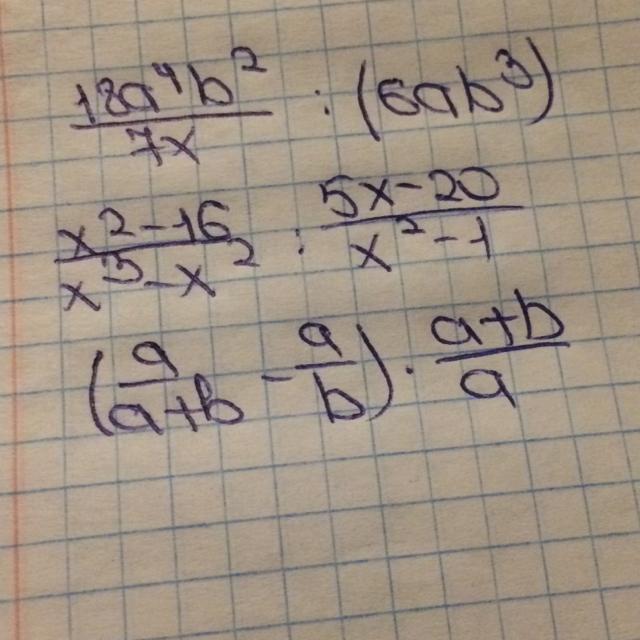 18a⁴b²/7x : (6ab³)
x²-16/x³-x² : 5x-20/x²-1
(a/a+b - a/b) · a+b/a